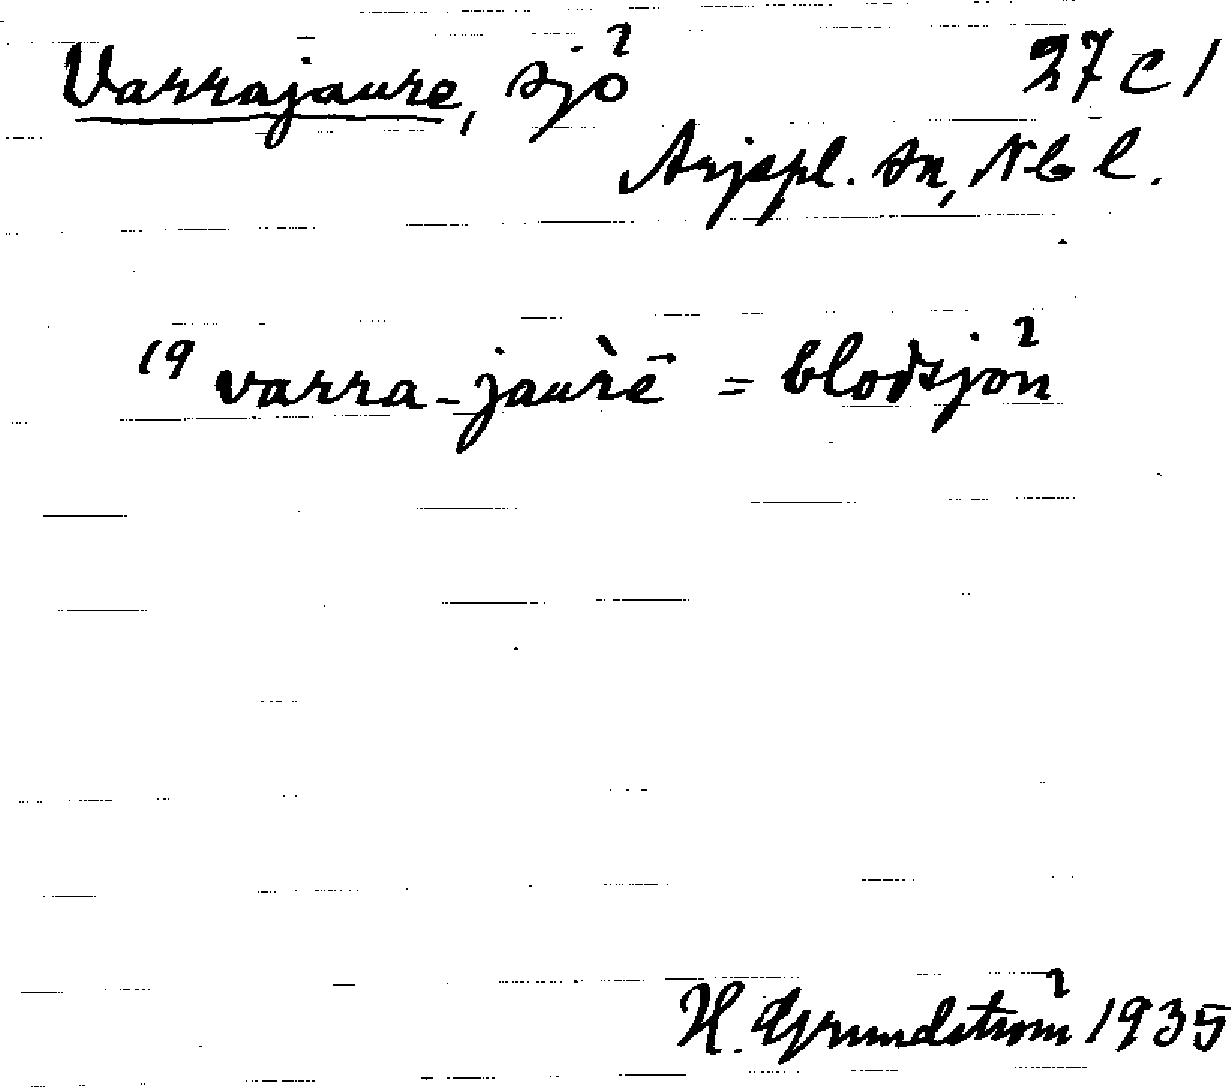 Varrajaure, sjö 27 C 1
Arjepl. sn, Nb l.
19 varra-jaùrē = blodsjön
H. Grundström 1935